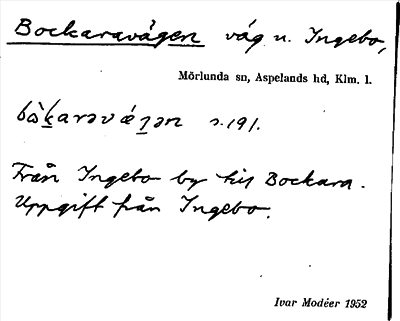 Bockaravägen väg n. Ingebo,
Mörlunda sn, Aspelands hd, Klm. l.
s. 191.
Från Ingebo by till Bockara.
Uppgift från Ingebo.
Ivar Modéer 1952